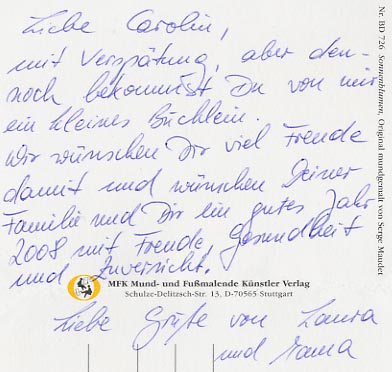 Liebe Carolin,
mit Verspätung, aber den-
noch bekommst Du von mir
ein kleines Büchlein.
Wir wünschen Dir viel Freude
damit und wünschen Deiner
Familie und Dir ein gutes Jahr
2008 mit Freude, Gesundheit
und Zuversicht.
MFK Mund- und Fußmalende Künstler Verlag
Schulze-Delitzsch-Str. 13, D-70565 Stuttgart
Liebe Grüße von Laura
und Mama
Nr. BD 726 Sonnenblumen, Original mundgemalt von Serge Maudet